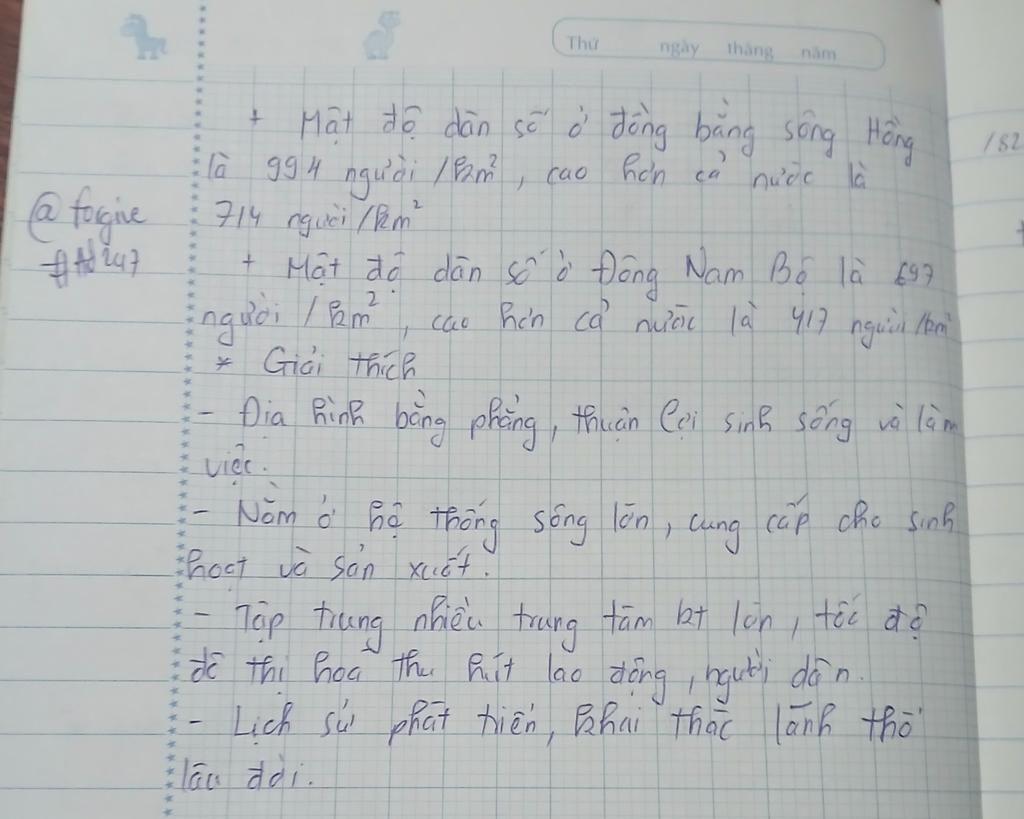 Thứ ngày tháng năm
+ Mật độ dân số ở đồng bằng sông Hồng
là 994 người/km², cao hơn cả nước là
714 người/km²
@forgive
##247
+ Mật độ dân số ở Đông Nam Bộ là 697
người/km², cao hơn cả nước là 417 người/km²
* Giải thích
- Địa hình bằng phẳng, thuận lợi sinh sống và làm
việc.
- Nằm ở hệ thống sông lớn, cung cấp cho sinh
hoạt và sản xuất.
- Tập trung nhiều trung tâm kt lớn, tốc độ
đô thị hoá thu hút lao động, người dân.
- Lịch sử phát triển, khai thác lãnh thổ
lâu đời.
182